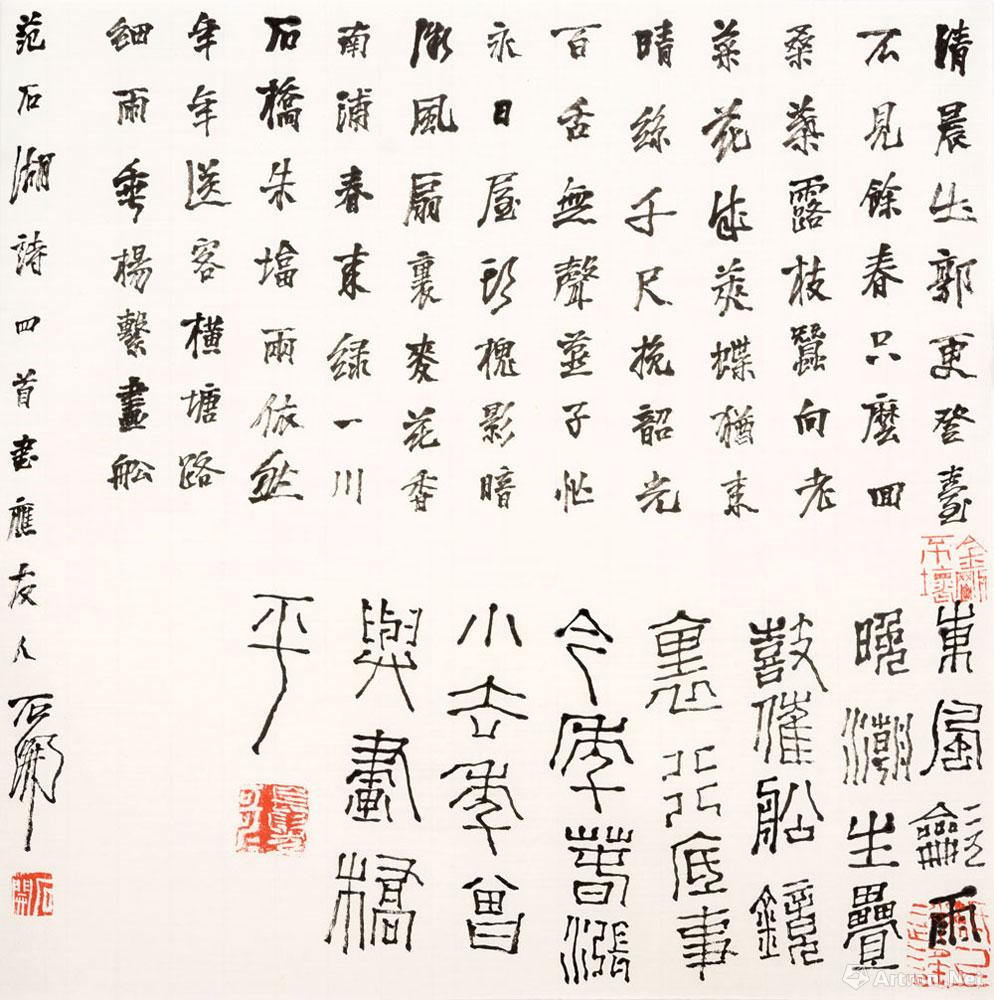 清晨出郭更登臺
不見餘春只麼回
桑葉露枝蠶向老
菜花成莢蝶猶來
晴絲千尺挽韶光
百舌無聲燕子忙
永日屋頭槐影暗
微風扇裏麥花香
南浦春來緑一川
石橋朱塔兩依然
年年送客橫塘路
細雨垂楊繫畫船
東風龡雨
晚潮生疊
鼓催船鏡
裏行底事
今年春漲
小去年曾
與畫橋
平
范石湖詩四首書應友人石開
金剛不壞
石開
Artron.Net